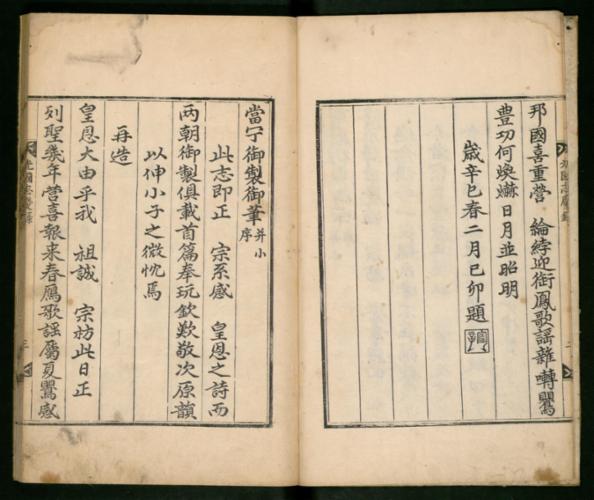 邦國喜重營 綸綍迎銜鳳歌謠雜囀鸎
豊功何煥爀日月並昭明
歲辛巳春二月己卯題
當宁御製御筆并小序
此志即正 宗系感 皇恩之詩而
兩朝御製俱載首篇奉玩欽歎敬次原韻
以伸小子之微忱焉
再造
皇恩大由乎我 祖誠 宗祊此日正
列聖幾年營喜報来春鴈歌謠屬夏鸎感
三